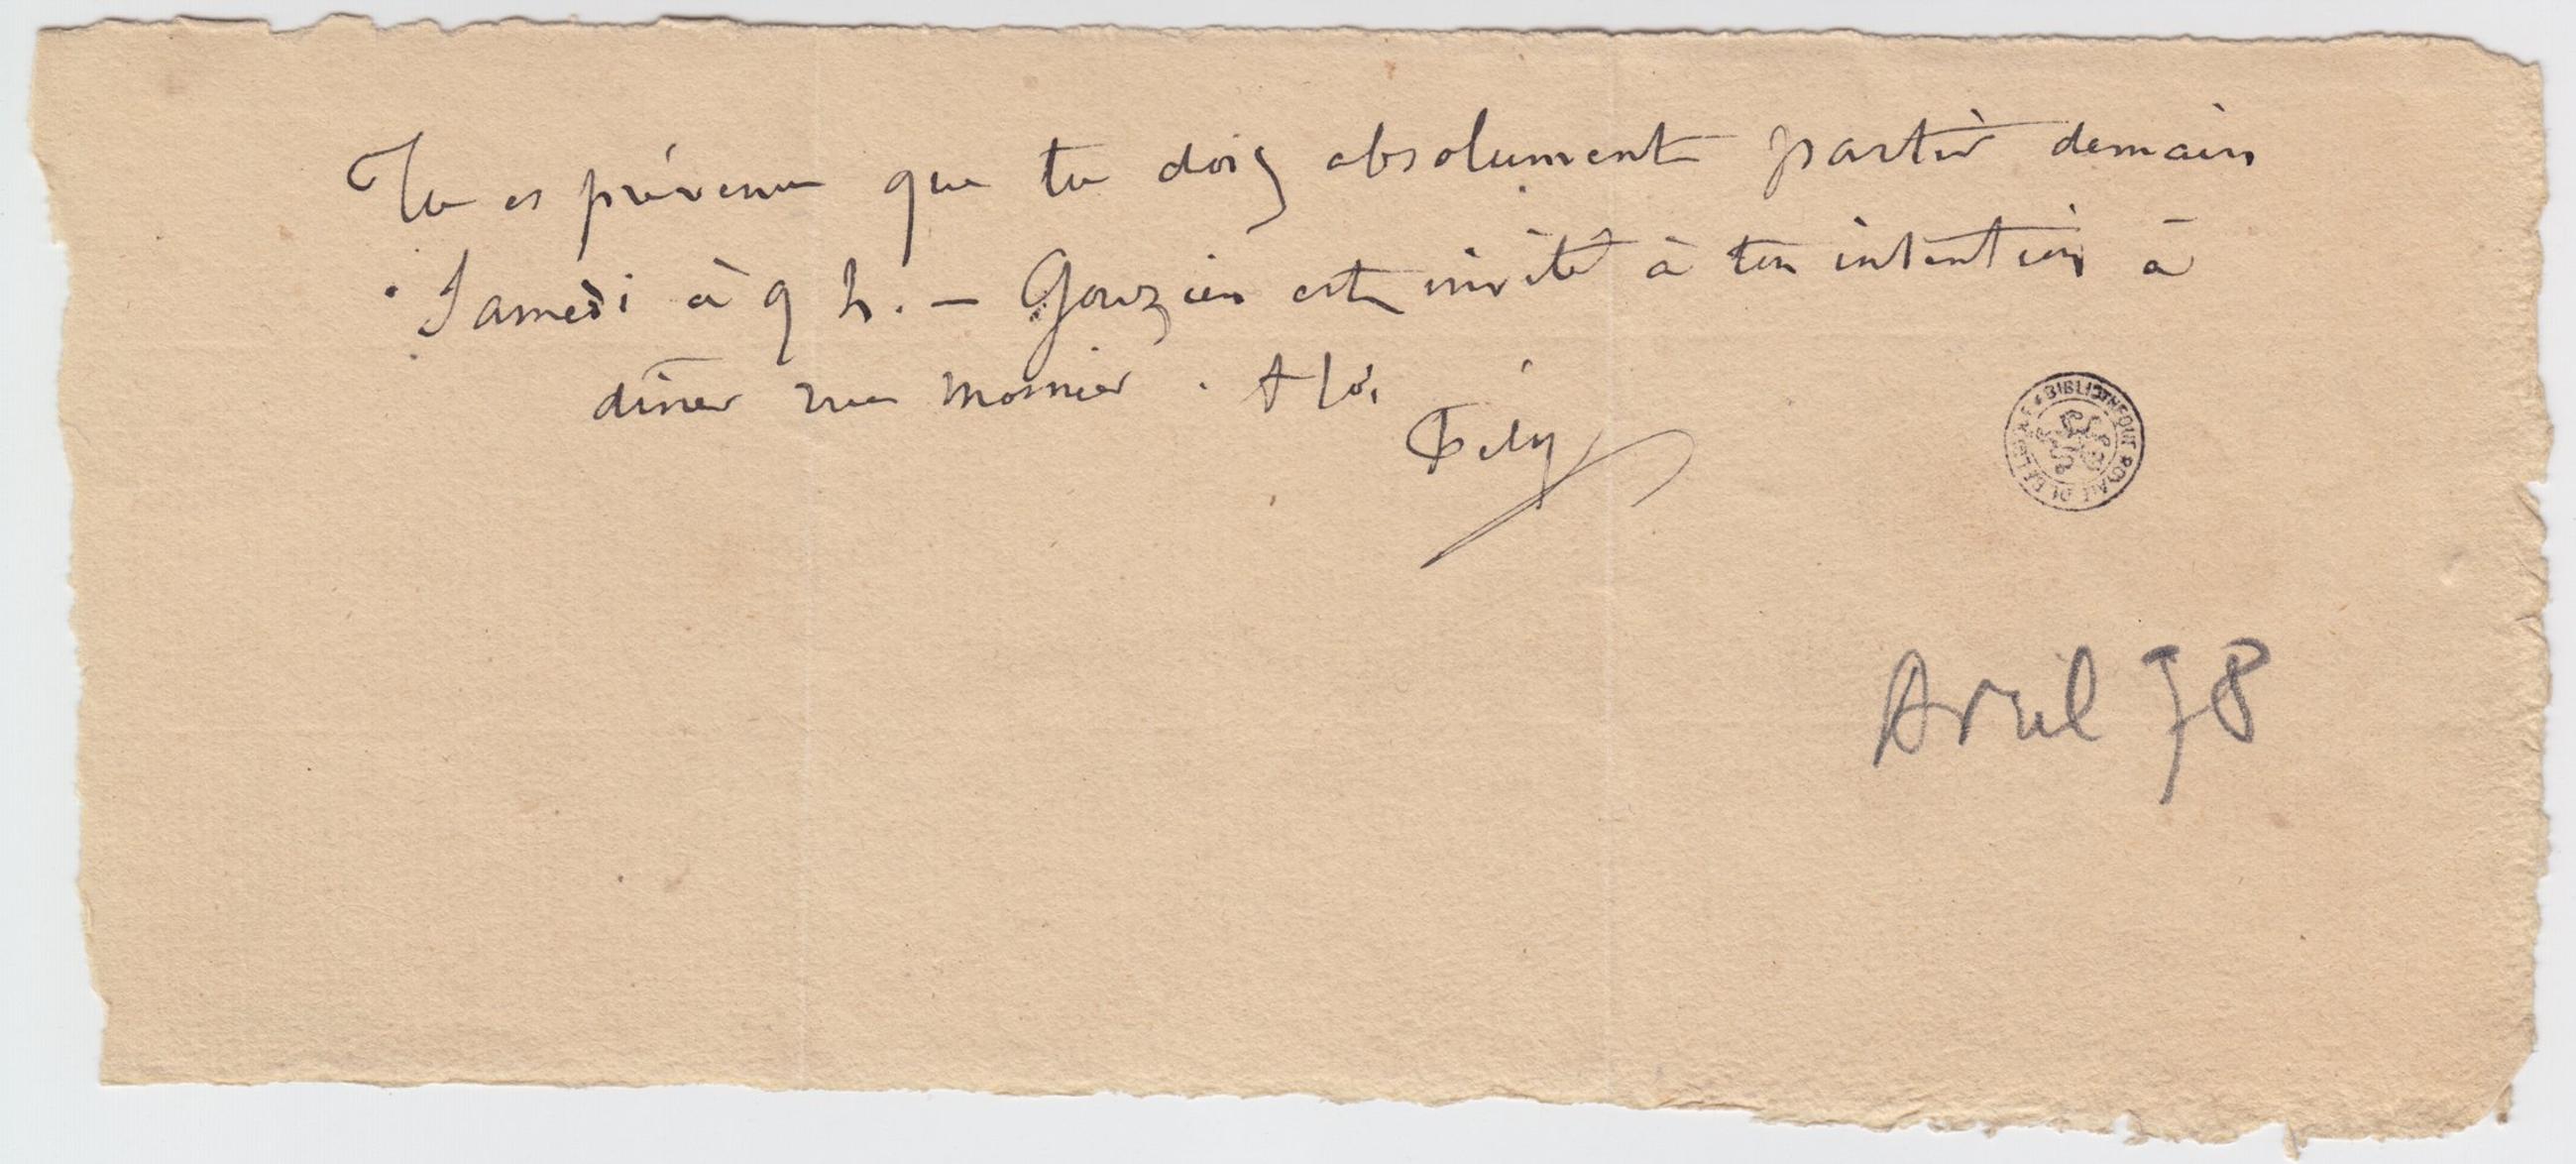 Tu es prévenu que tu dois absolument partir demain
Samedi à 9 h. – Gouzien est invité à ton intention à
dîner rue Mosnier. A toi,
Fély
BIBLIOTHÈQUE ROYALE DE BELGIQUE
Avril 78